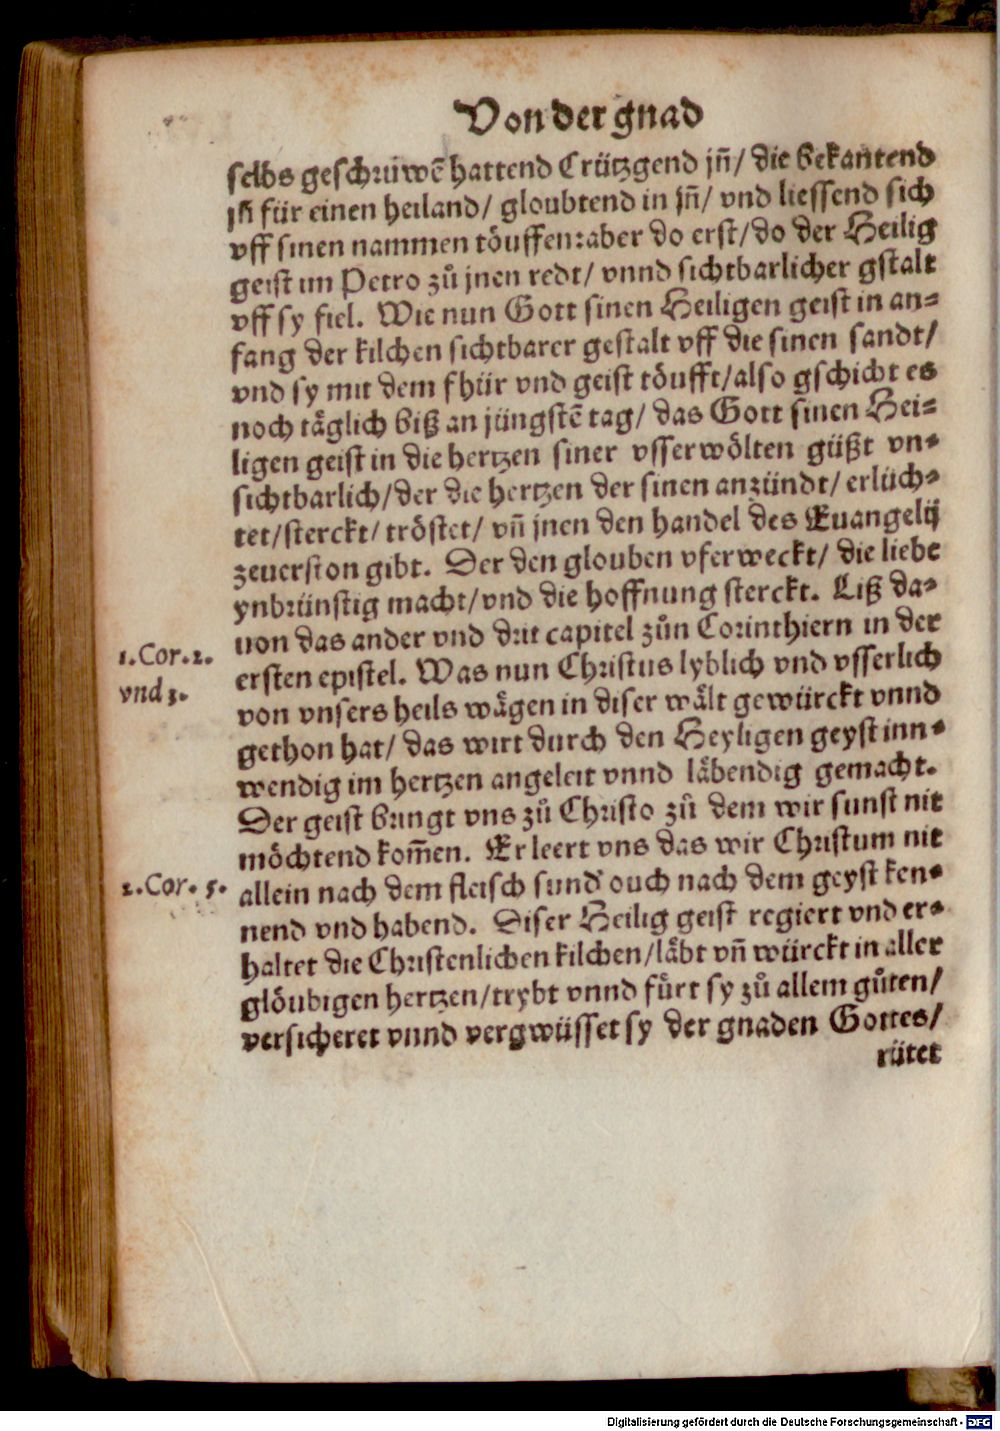 Von der gnad
selbs geschrüwē hattend Crützgend jn̄/ die bekantend
jn̄ für einen heiland/ gloubtend in jn̄/ vnd liessend sich
vff sinen nammen töuffen: aber do erst/ do der Heilig
geist im Petro zů jnen redt/ vnnd sichtbarlicher gstalt
vff sy fiel. Wie nun Gott sinen Heiligen geist in an=
fang der kilchen sichtbarer gestalt vff die sinen sandt/
vnd sy mit dem fhür vnd geist töufft/ also gschicht es
noch täglich biß an jüngstē tag/ das Gott sinen Hei=
ligen geist in die hertzen siner vsserwölten güßt vn=
sichtbarlich/ der die hertzen der sinen anzündt/ erlüch=
tet/ sterckt/ tröstet/ vn̄ jnen den handel des Euangelij
zeuerston gibt. Der den glouben vferweckt/ die liebe
ynbrünstig macht/ vnd die hoffnung sterckt. Liß da=
uon das ander vnd drit capitel zůn Corinthiern in der
1.Cor.2.
vnd 3.
ersten epistel. Was nun Christus lyblich vnd vsserlich
von vnsers heils wägen in diser wält gewürckt vnnd
gethon hat/ das wirt durch den Heyligen geyst inn=
wendig im hertzen angeleit vnnd läbendig gemacht.
Der geist bringt vns zů Christo zů dem wir sunst nit
möchtend kom̄en. Er leert vns das wir Christum nit
2.Cor. 5.
allein nach dem fleisch sund' ouch nach dem geyst ken=
nend vnd habend. Diser Heilig geist regiert vnd er=
haltet die Christenlichen kilchen/ läbt vn̄ würckt in aller
glöubigen hertzen/ trybt vnnd fürt sy zů allem gůten/
versicheret vnnd vergwüsset sy der gnaden Gottes/
rütet
Digitalisierung gefördert durch die Deutsche Forschungsgemeinschaft - DFG